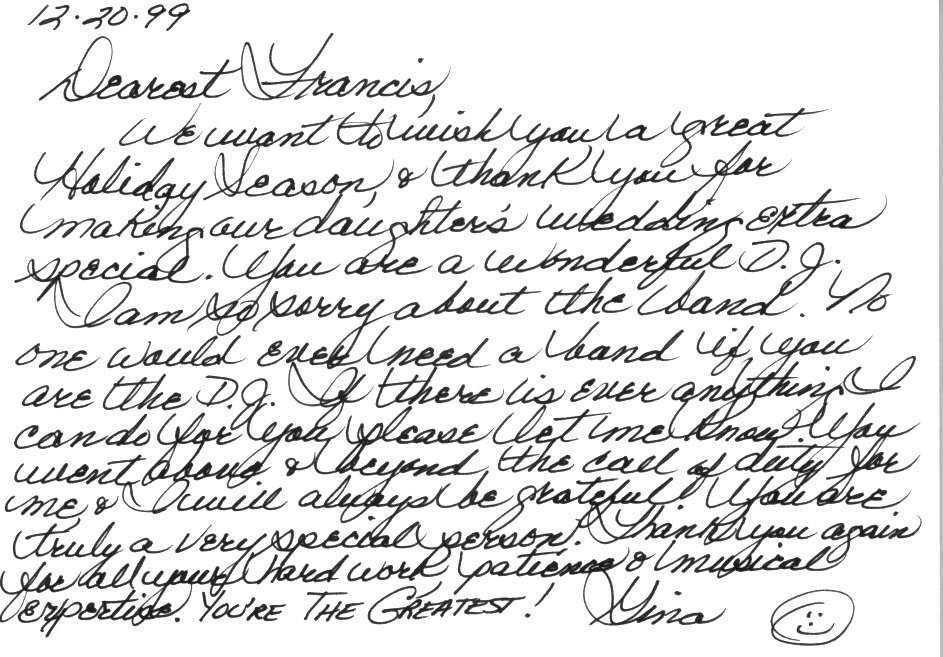 12.20.99
Dearest Francis,
We want to wish you a great
Holiday Season, & thank you for
making our daughter's wedding extra
special. You are a wonderful D.J.
I am so sorry about the band. No
one would ever need a band if you
are the D.J. If there is ever anything I
can do for you please let me know. You
went above & beyond the call of duty for
me & I will always be grateful! You are
truly a very special person. Thank you again
for all your hard work, patience & musical
expertise. YOU'RE THE GREATEST! Gina